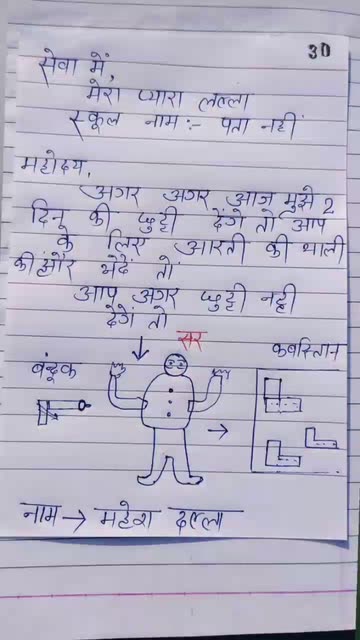 30
सेवा में,
मेरा प्यारा लल्ला
स्कूल नाम:- पता नहीं
महोदय,
अगर अगर आज मुझे 2
दिनू की छुट्टी देंगे तो आप
के लिए आरती की थाली
की और भेदें तो
आप अगर छुट्टी नही
देगें तो
सर
कबस्तिान
बंदूक
नाम → महेश दल्ला